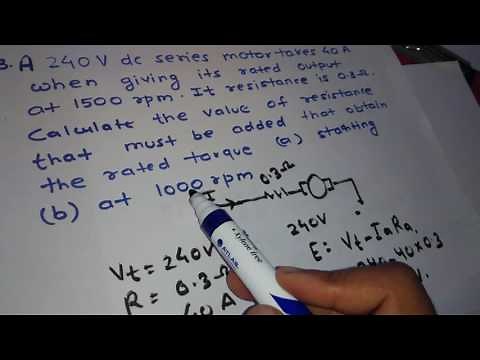 3. A 240V dc series motor takes 40A
when giving its rated output
at 1500 rpm. It resistance is 0.3Ω.
Calculate the value of resistance
that must be added that obtain
the rated torque (a) starting
(b) at 1000 rpm
0.3Ω
240V
Vt = 240V
E = Vt - IaRa
R = 0.3Ω
40×0.3
40A